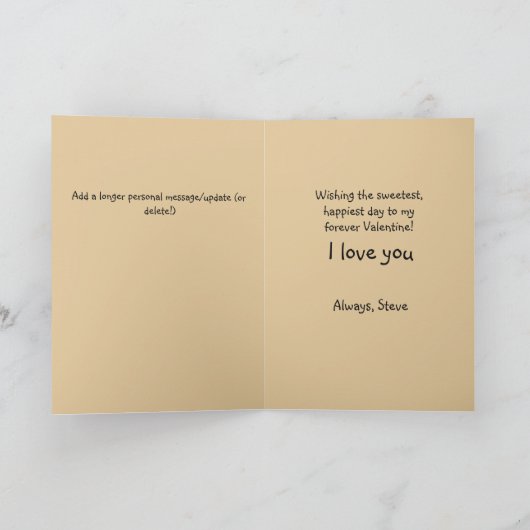 Add a longer personal message/update (or
delete!)
Wishing the sweetest,
happiest day to my
forever Valentine!
I love you
Always, Steve